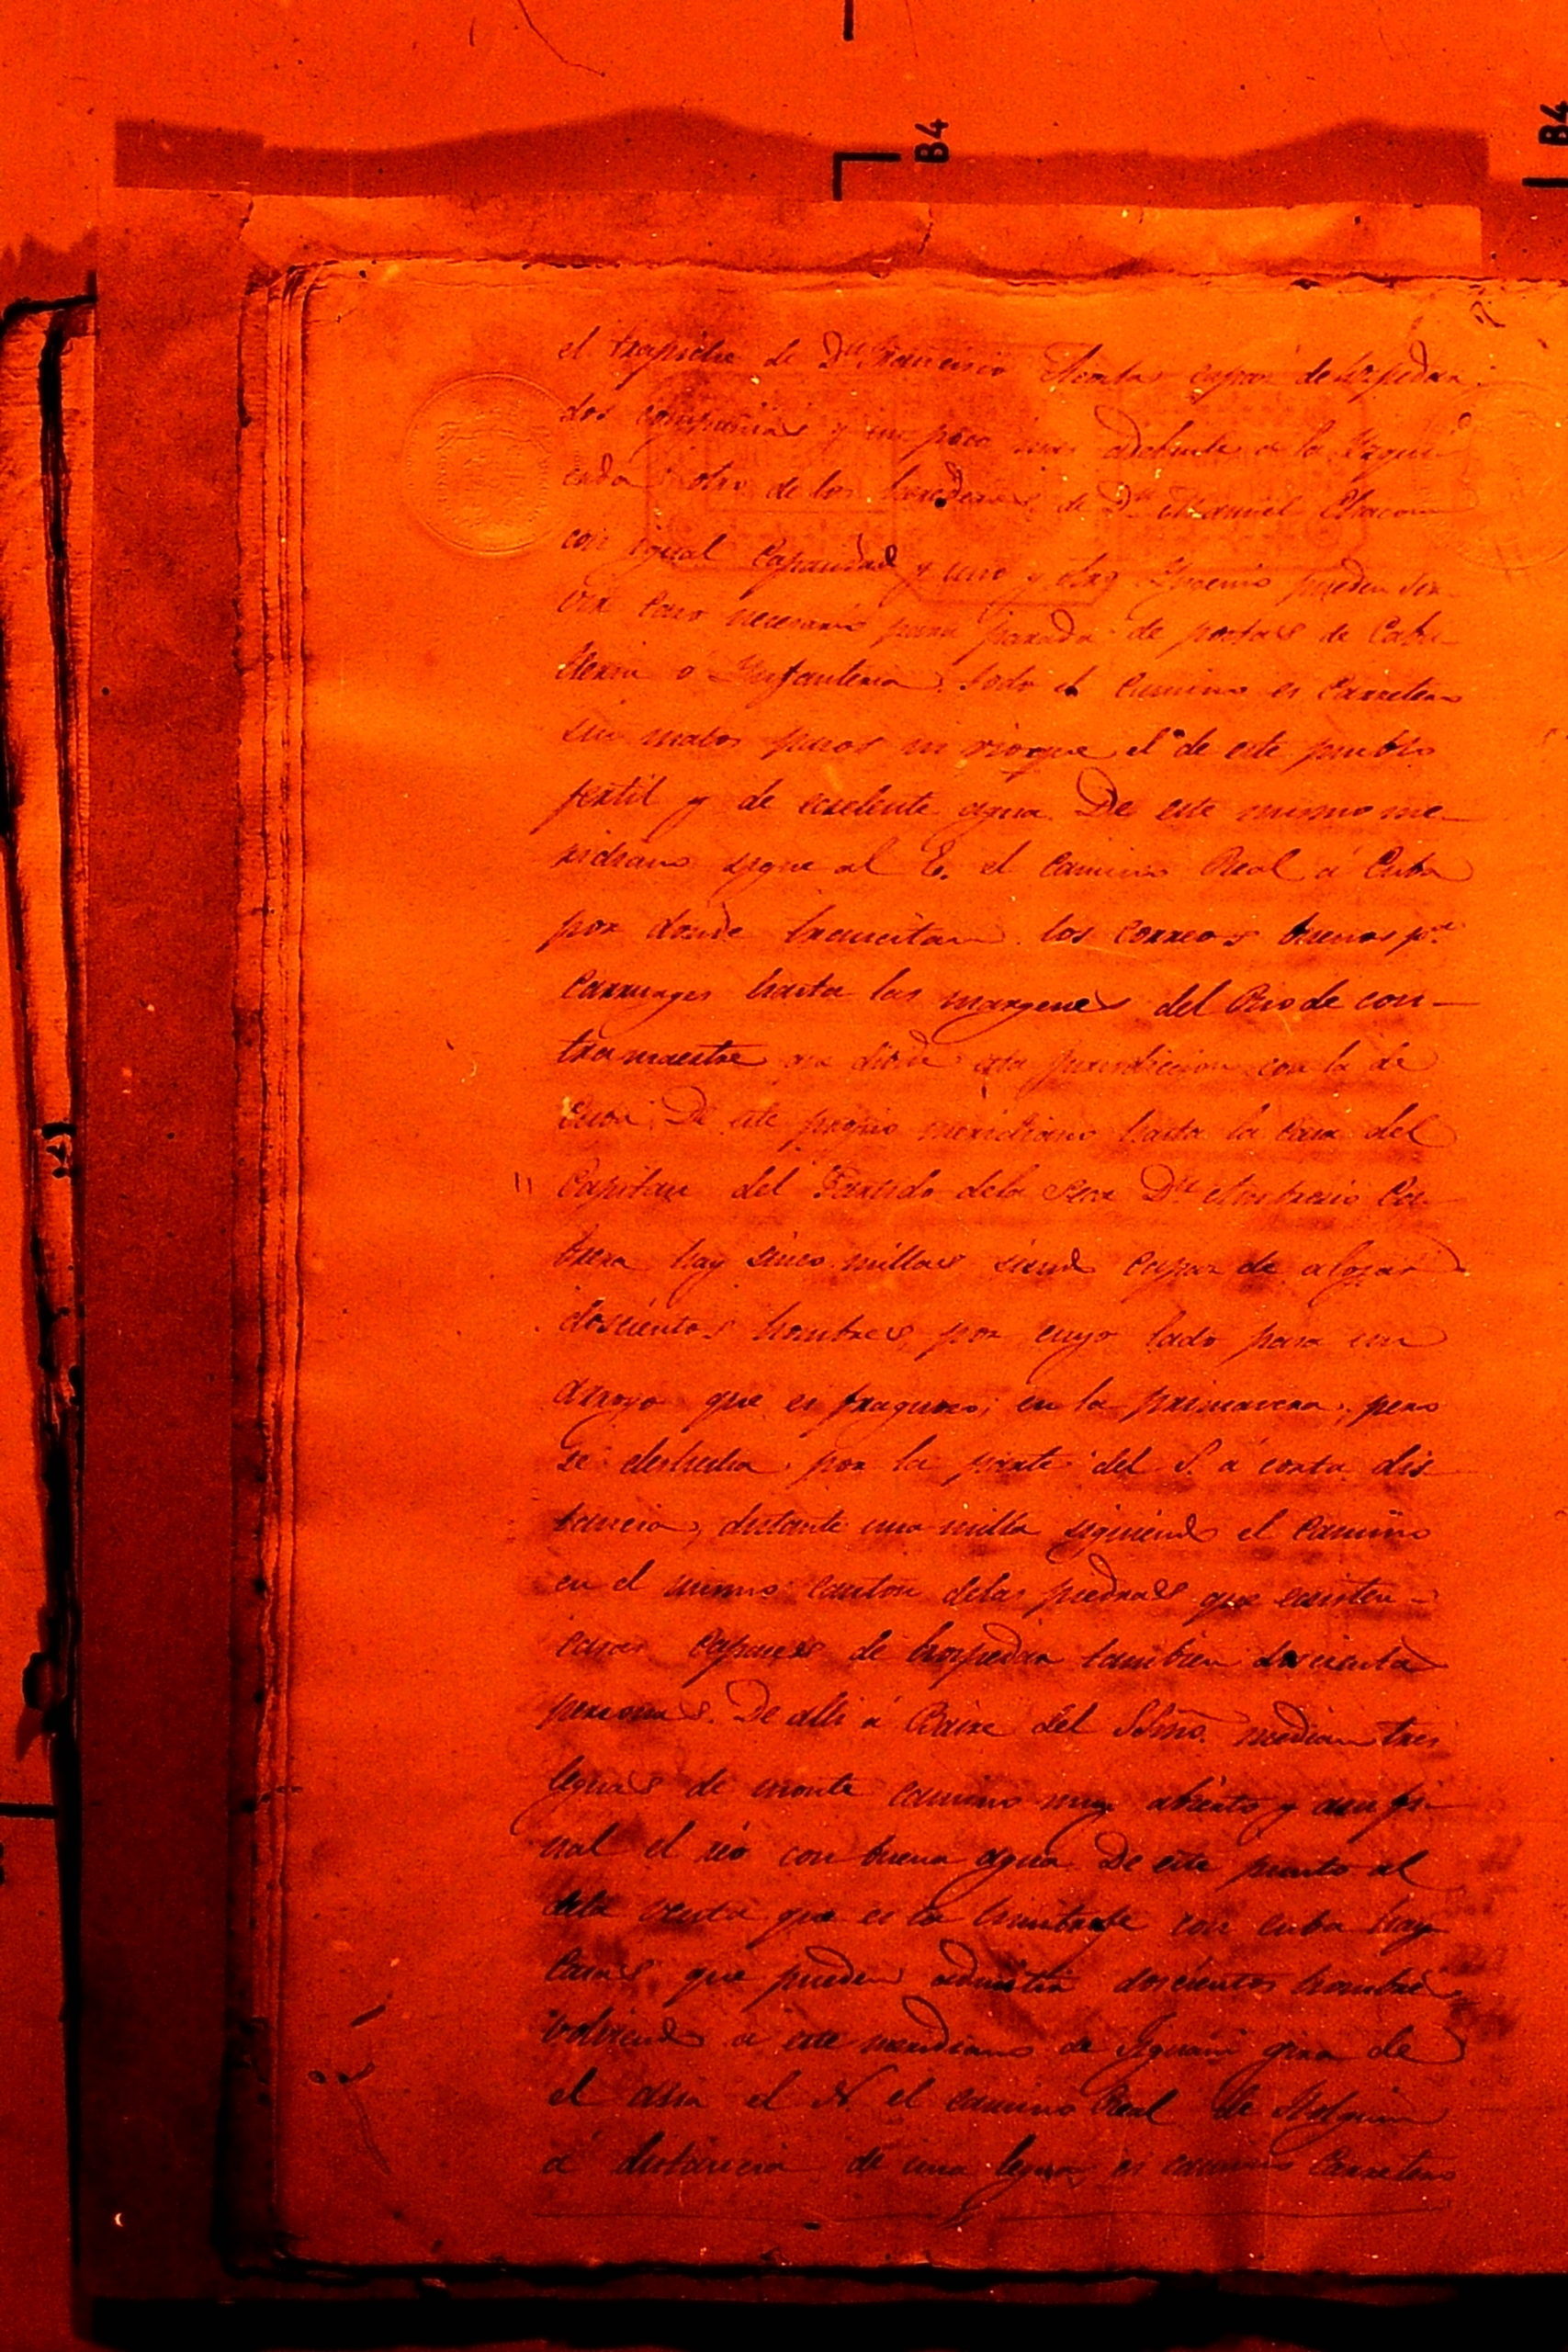 B4
B4
el trapiche de Dn Francisco capaz de ospedar
dos compañias y un poco mas adelante a la Izqui
erda otro de los herederos de Dn Manuel Chacon
con igual capacidad y uno y otro Ingenio pueden ser-
vir caso necesario para parada de postas de Caba-
lleria o Infanteria. Todo el camino es carretero
sin malos pasos ni rio que el de este pueblo
fertil y de exelente agua. De este mismo me-
ridiano sigue al E. el camino Real á Cuba
por donde trancitan los correos buenos pa.
carruages hasta las margenes del Rio de con-
tramaestre que divide esta jurisdiccion con la de
Cuba. De este propio meridiano hasta la casa del
Capitan del Partido dela Dn Ambrosio Ca-
brera hay sinco millas siendo capaz de alojar
doscientos hombres, por cuyo lado pasa un
arroyo que es fragoso, en la primavera, pero
se deshecha por la parte del S. á corta dis
tancia, distante una milla siguiendo el camino
en el mismo canton delas piedras que existen-
casas capases de hospedar tambien doscienta
personas. De alli á Baire del median tres
leguas de monte camino muy abierto y asu fi-
nal el rio con buena agua. De este punto al
dela venta que es la limitrofe con cuba hay
casas que pueden admitir doscientos hombres
volviendo a este meridiano de Jiguani gira de
el asia el N. el camino Real de Holguin
á distancia de una legua, es camino carretero